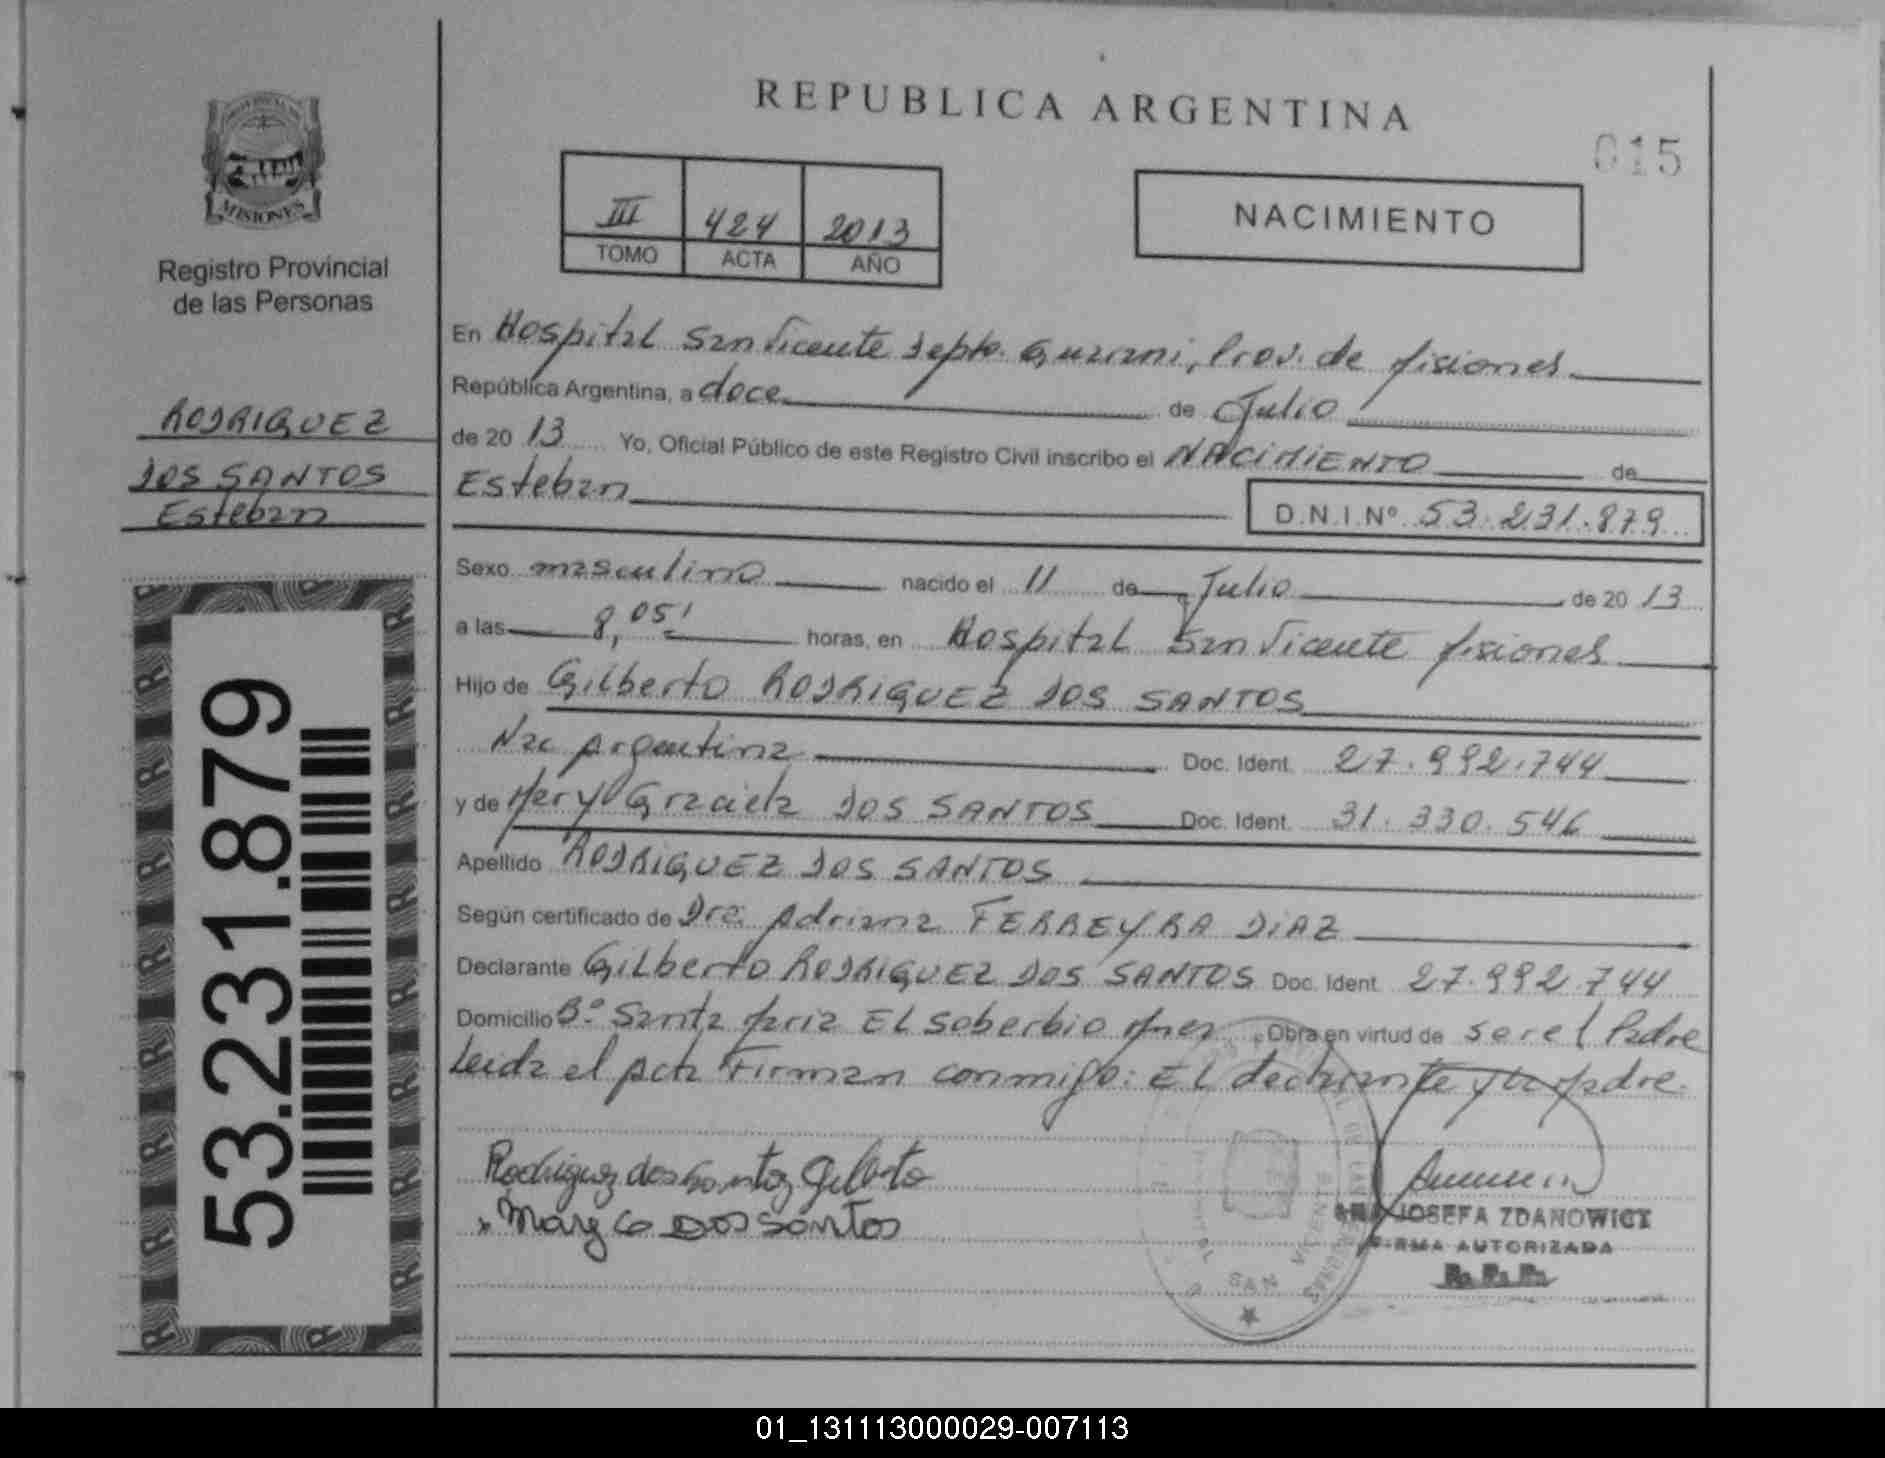 REPUBLICA ARGENTINA
015
MISIONES
Registro Provincial
de las Personas
III 424 2013
TOMO ACTA AÑO
NACIMIENTO
RODRIGUEZ
DOS SANTOS
Esteban
53.231.879
En Hospital San Vicente Depto. Guarani, Prov. de Misiones
República Argentina, a doce de Julio
de 2013 Yo, Oficial Público de este Registro Civil inscribo el NACIMIENTO de
Esteban D.N.I.Nº 53.231.879
Sexo masculino nacido el 11 de Julio de 2013
a las 8,05' horas, en Hospital San Vicente Misiones
Hijo de Gilberto RODRIGUEZ DOS SANTOS
Nac Argentina Doc. Ident. 27.992.744
y de Mery Graciela DOS SANTOS Doc. Ident. 31.330.546
Apellido RODRIGUEZ DOS SANTOS
Según certificado de Dra. Adriana FERREYRA DIAZ
Declarante Gilberto RODRIGUEZ DOS SANTOS Doc. Ident. 27.992.744
Domicilio Bº Santa Maria El Soberbio Mnes Obra en virtud de ser el Padre
Leida el Acta Firman conmigo: El declarante y la Madre.
Rodriguez dos Santos Gilberto
Mary G DOS Santos
SAN VICENTE
JOSEFA ZDANOWICZ
FIRMA AUTORIZADA
01_131113000029-007113